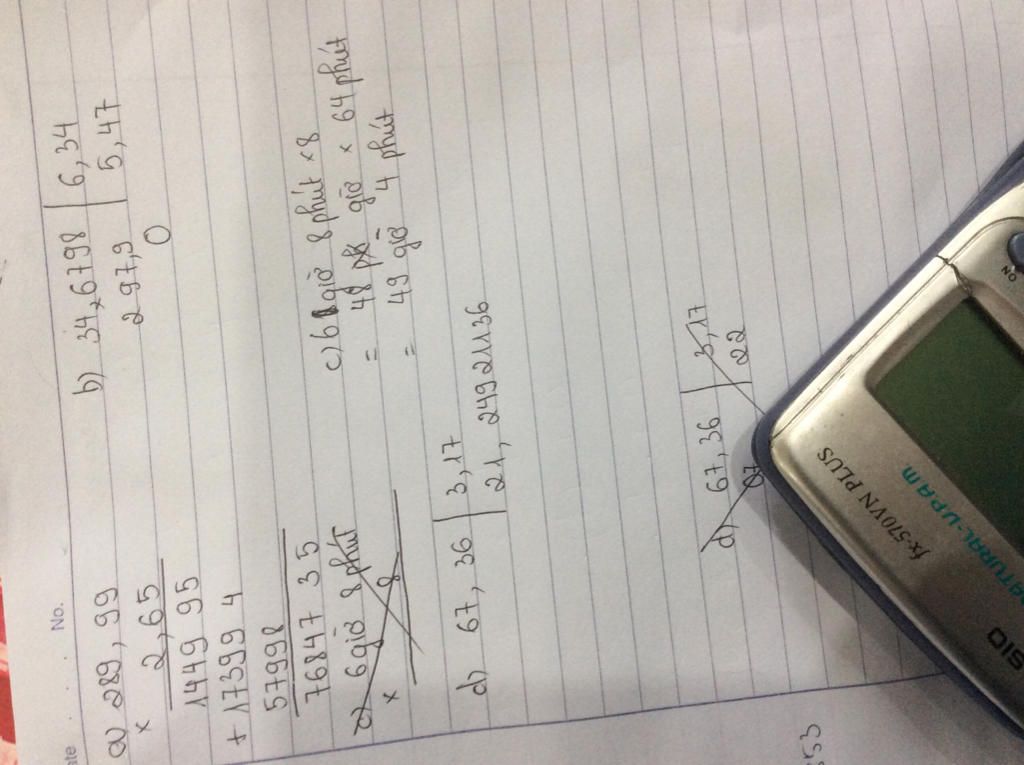 No.
a) 289,99
x 2,65
1449 95
+ 17399 4
57998
76847 35
b) 34,6798 | 6,34
297,9 | 5,47
0
c) 6 giờ 8 phút
x 8
c) 6 giờ 8 phút x 8
= 48 giờ x 64 phút
= 49 giờ 4 phút
d) 67, 36 | 3,17
21, 24921136
d) 67, 36 | 3,17
07 | 22
fx-570VN PLUS
NATURAL-V.P.A.M
ON